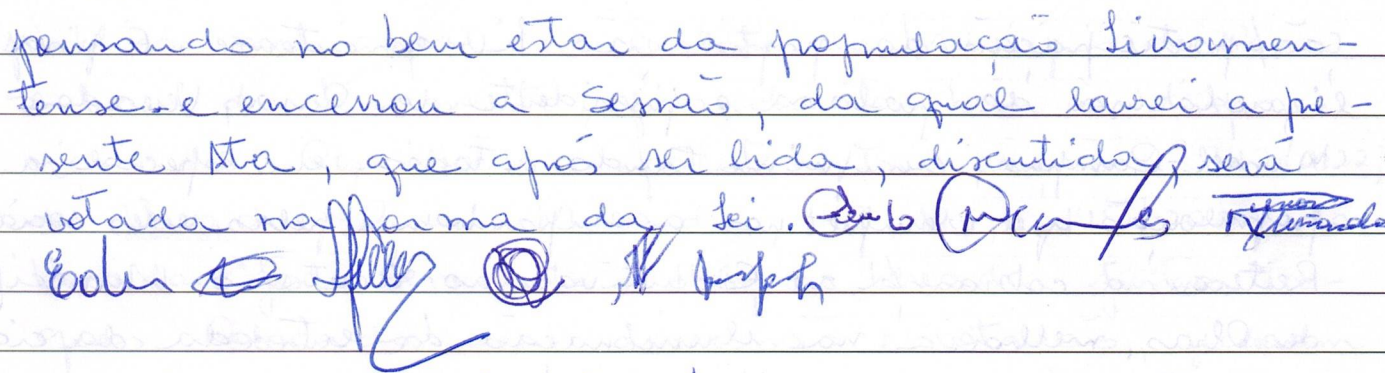 pensando no bem estar da população Livramen-
tense. e encerrou a Sessão, da qual lavrei a pre-
sente Ata, que após ser lida, discutida, será
votada na forma da Lei.